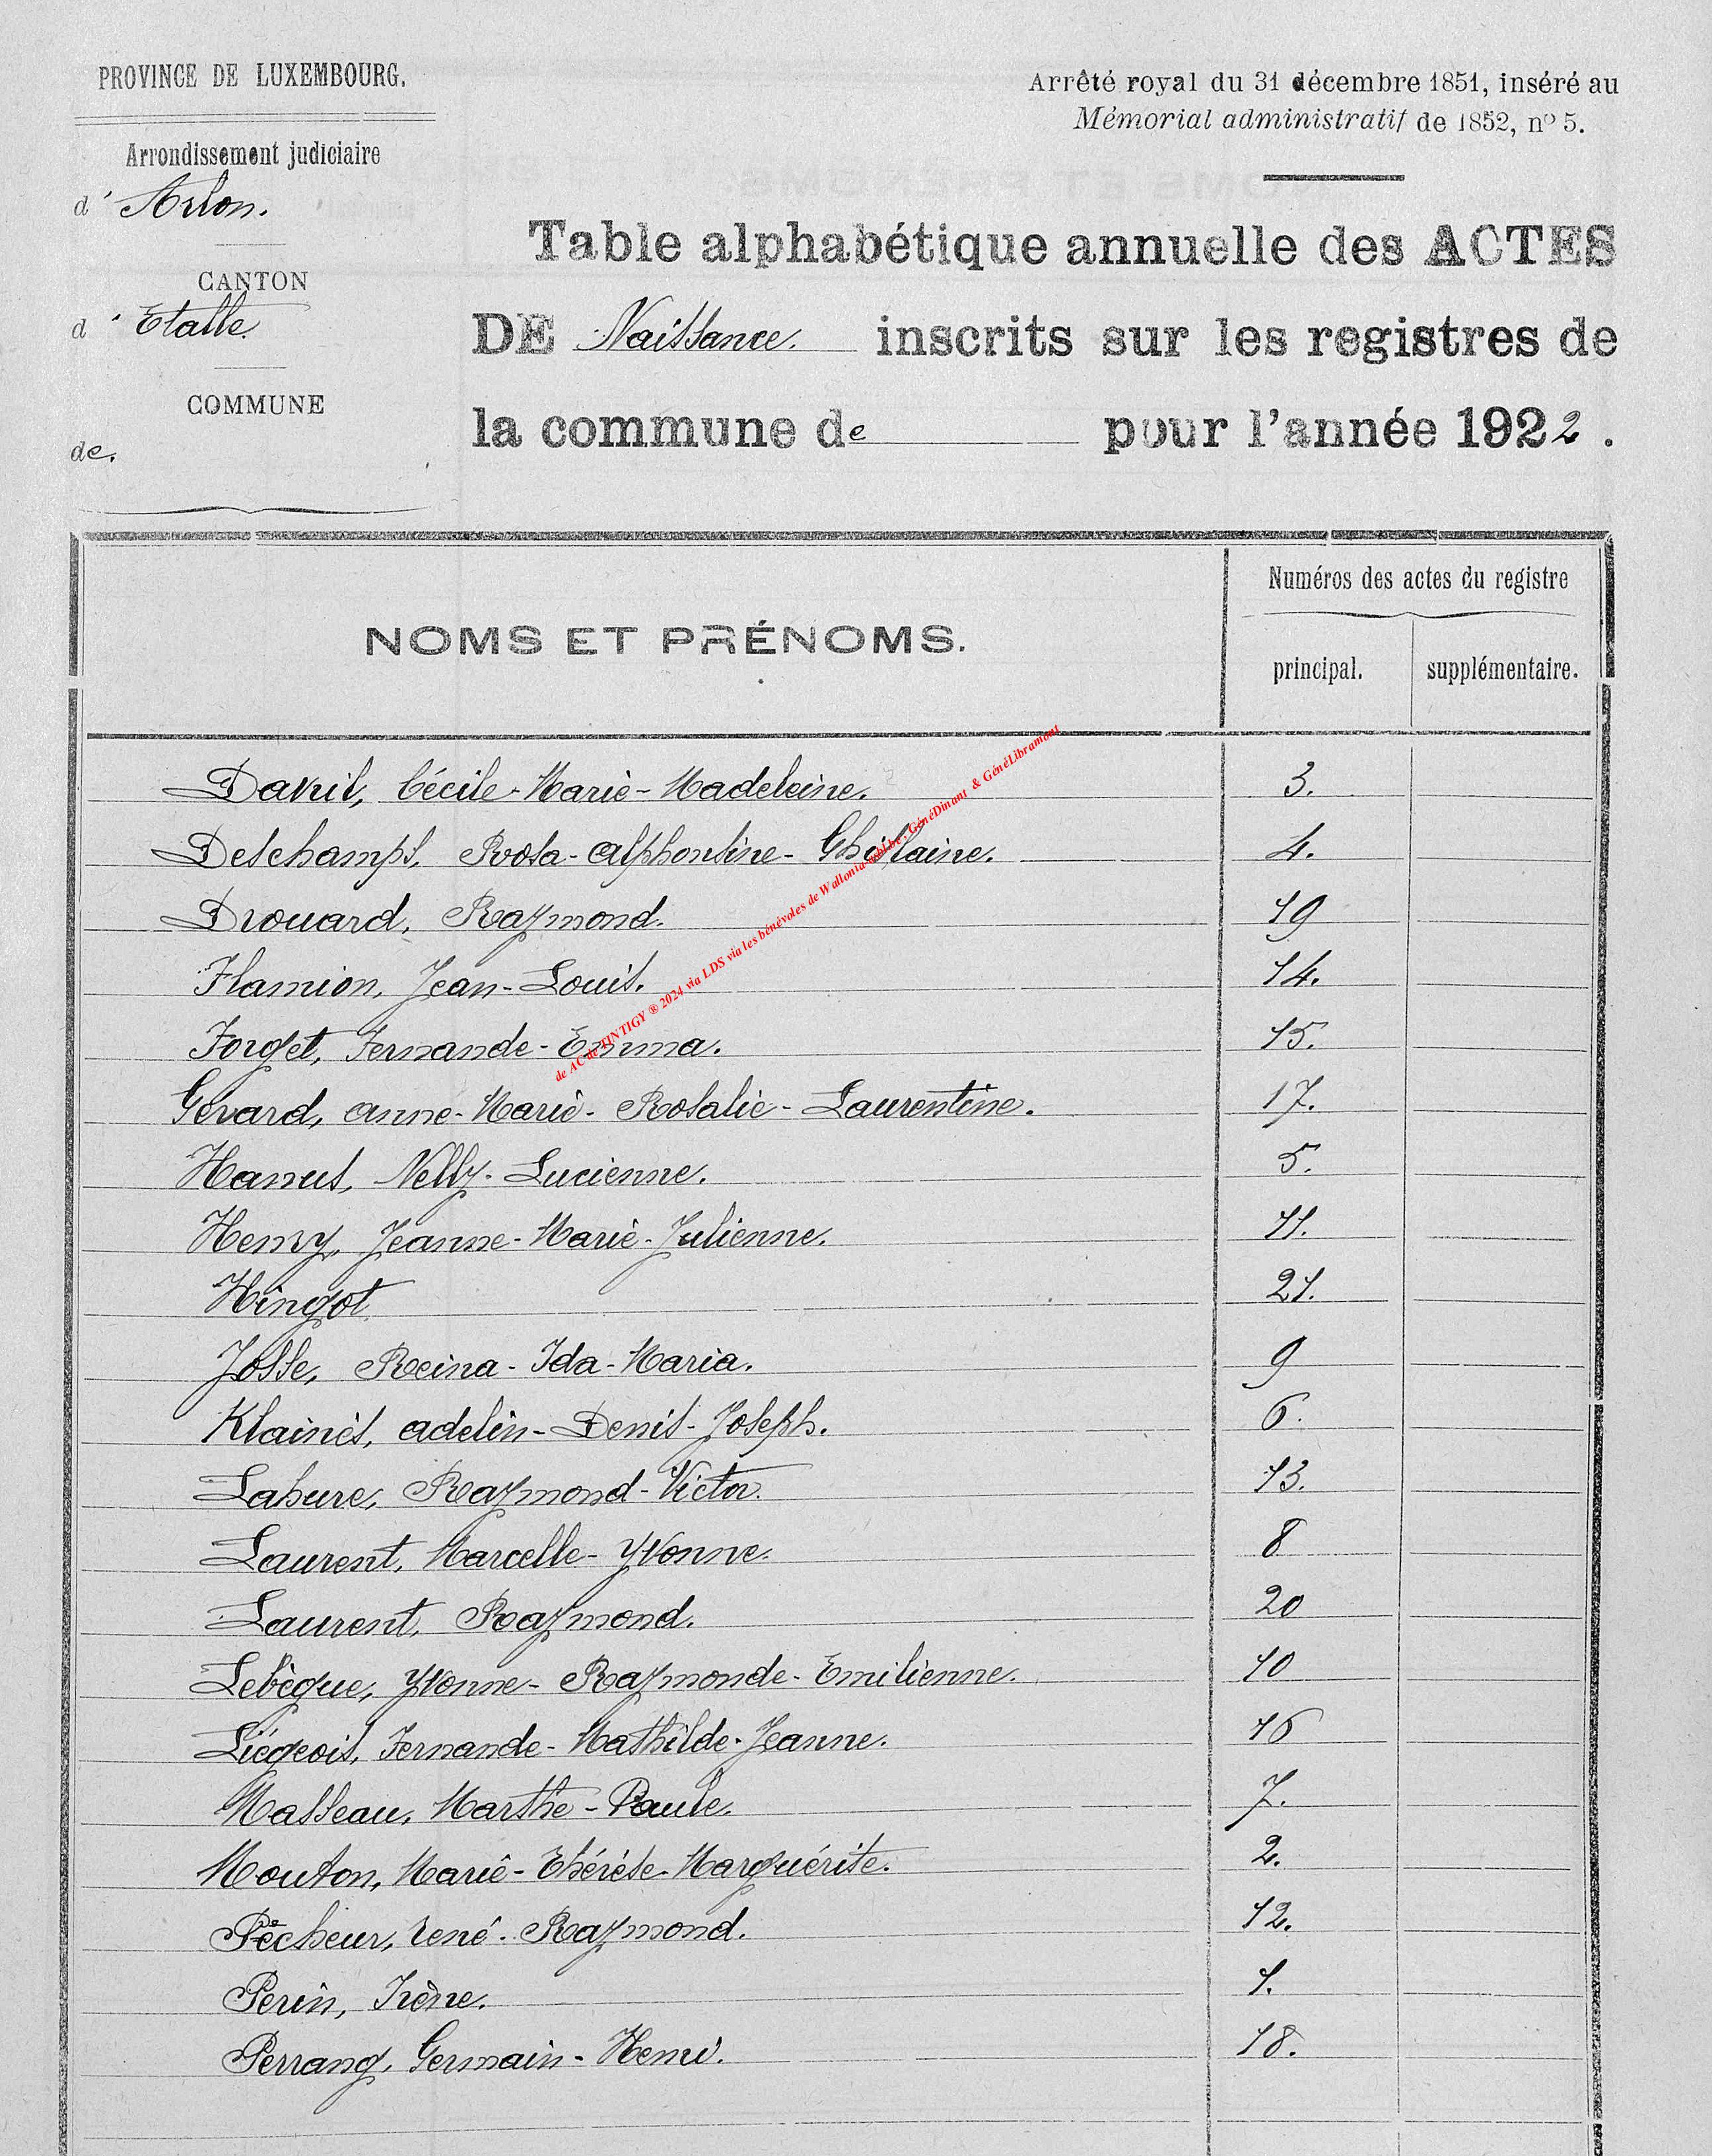 PROVINCE DE LUXEMBOURG.
Arrondissement judiciaire
d' Arlon.
CANTON
d' Etalle.
COMMUNE
de.
Arrêté royal du 31 décembre 1851, inséré au
Mémorial administratif de 1852, nº 5.
Table alphabétique annuelle des ACTES
DE Naissance. inscrits sur les registres de
la commune de pour l'année 1922.
NOMS ET PRÉNOMS.
Numéros des actes du registre
principal. supplémentaire.
Davril, Cécile-Marie-Madeleine. 3.
Deschamps, Rosa-Alphonsine-Ghislaine. 4.
Drouard, Raymond. 19
Flamion, Jean-Louis. 14.
Forget, Fernande-Emma. 15.
Gérard, Anne-Marie-Rosalie-Laurentine. 17.
Hanus, Nelly-Lucienne. 5.
Henry, Jeanne-Marie-Julienne. 11.
Hingot 21.
Josse, Reina-Ida-Maria. 9
Klainès, Adelin-Denis-Joseph. 6.
Lahure, Raymond-Victor. 13.
Laurent, Marcelle-Yvonne. 8
Laurent, Raymond. 20
Lebègue, Yvonne-Raymonde-Emilienne. 10
Liégeois, Fernande-Mathilde-Jeanne. 16
Masseau, Marthe-Paule. 7.
Mouton, Marie-Thérèse-Marguérite. 2.
Pêcheur, René-Raymond. 12.
Perin, Irène. 1.
Perrang, Germain-Henri. 18.
de AC de TINTIGY ® 2024 via LDS via les bénévoles de Wallonia asbl.be, GénéDinant & GénéLibramont